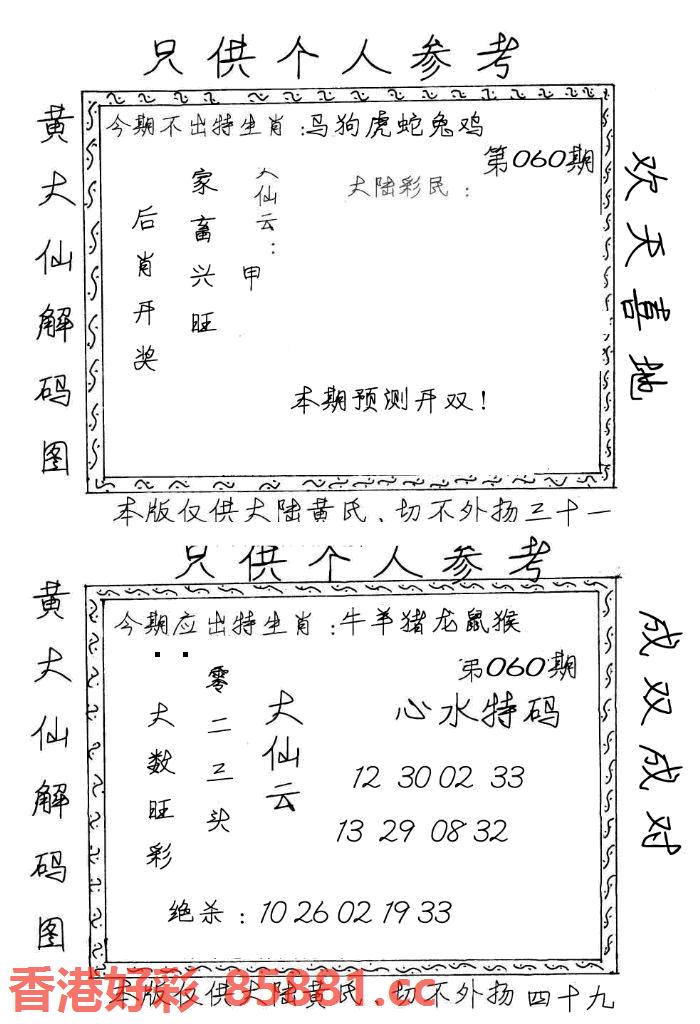 只供个人参考
黄大仙解码图
今期不出特生肖：马狗虎蛇兔鸡
第060期
大仙云：
甲
家畜兴旺
后肖开奖
大陆彩民：
本期预测开双！
欢天喜地
本版仅供大陆黄氏、切不外扬三十一
只供个人参考
黄大仙解码图
今期应出特生肖：牛羊猪龙鼠猴
第060期
大仙云
零二三头
大数旺彩
心水特码
12 30 02 33
13 29 08 32
绝杀：10 26 02 19 33
成双成对
本版仅供大陆黄氏、切不外扬四十九
香港好彩 85881.cc